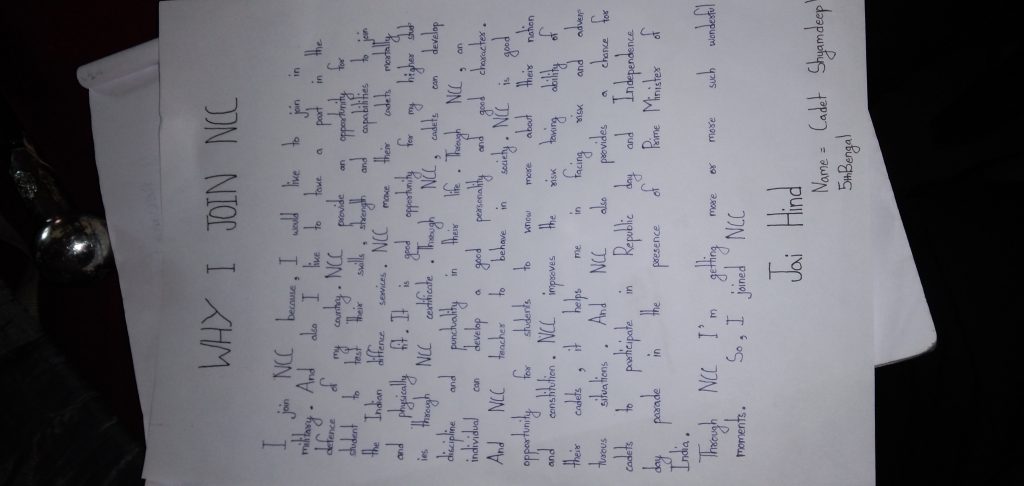 WHY I JOIN NCC
I join NCC because, I would like to join in
military. And also I like to take a part in the
defence of my country. NCC provide an opportunity for
student to test their skills, strength and capabilities to join
the Indian diffence services. NCC make their cadets mentally
and physically fit. It is good opportunity for my higher stud-
ies through NCC certificate. Through NCC, cadets can develop
discipline and punctuality in their life. Through NCC, an
individual can develop a good personality and good character.
And NCC teacher to behave in society. NCC is good
opportunity for students to know more about their nation
and constitution. NCC improves the risk taking ability of
their cadets, it helps me in facing risk and adven-
turous situations. And NCC also provides a chance for
cadets to participate in Republic day and Independence
day parade in the presence of Prime Minister of
India.
Through NCC I'm getting more or more such wonderful
moments. So, I joined NCC
Jai Hind
Name = Cadet Shyamdeep
5thBengal